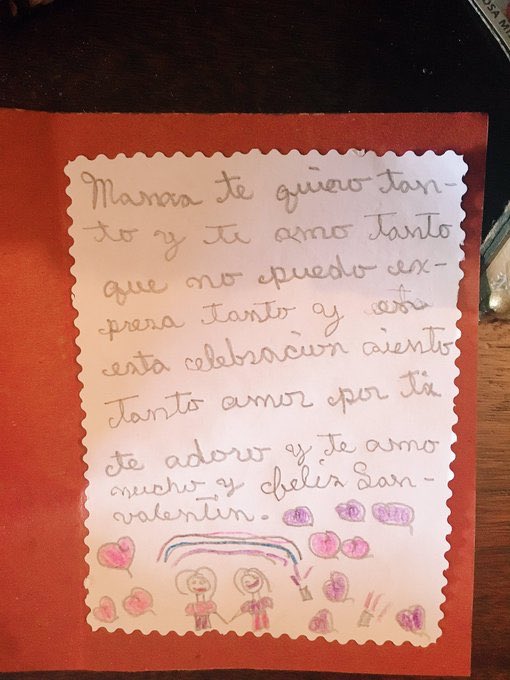 Mamá te quiero tan-
to y te amo tanto
que no puedo ex-
presa tanto y
esta celebracion siento
tanto amor por ti
te adoro y te amo
mucho y feliz San-
valentin.
OSA MI